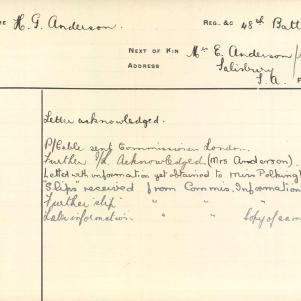 H. G. Anderson. REG. &C 48th Batt
NEXT OF KIN Mrs E. Anderson
ADDRESS Salisbury
S. A.
Letter acknowledged.
P/Cable sent Commissioner London.
Further acknowledged (Mrs Anderson).
Letter with information yet obtained to Miss
"Slips" received from Commis. Information
Further "slip" " " "
Later information " Copy of